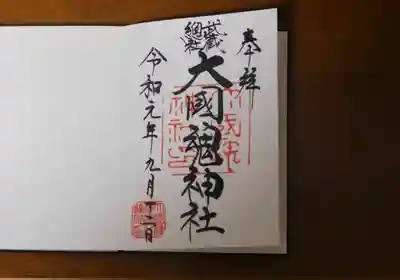 奉拝
武蔵
總社
大國魂神社
令和元年九月十二日